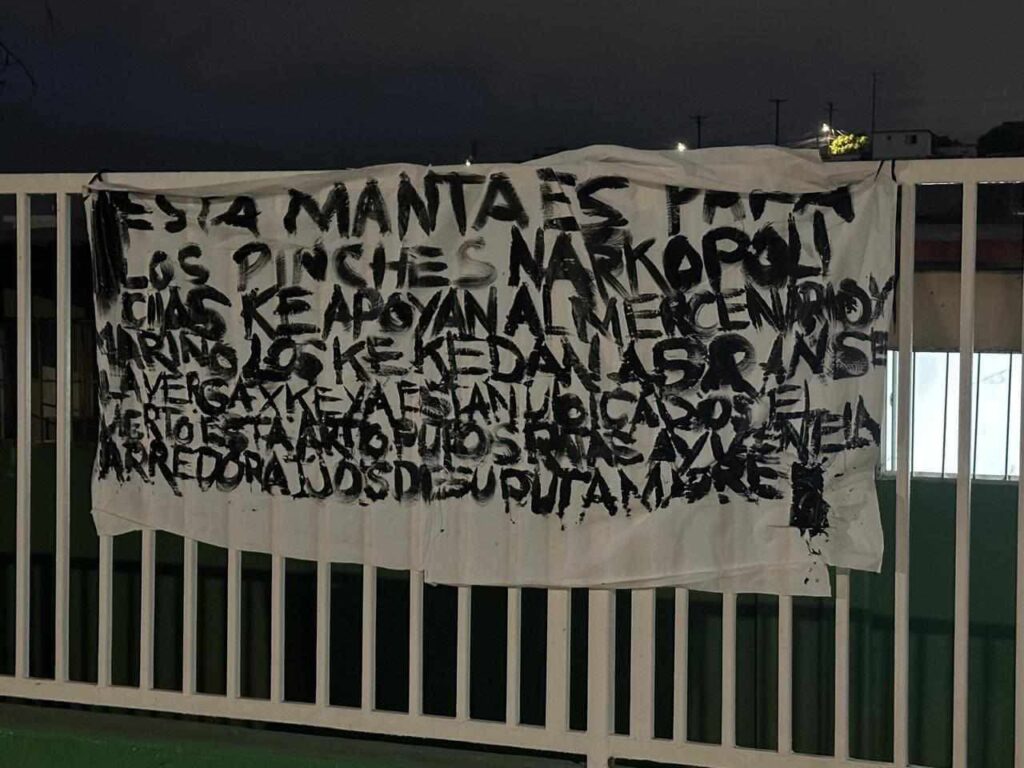 ESTA MANTA ES PARA
LOS PINCHES NARKOPOLI
CIIAS KE APOYAN AL MERCENARIO Y
MARINO LOS KE KEDAN ABRANSE
LA VERGA X KE YA ESTAN UBICADOS EL
ESTA ARTO PUTOS RATAS AY VIENE LA
ARREDORA IJOS DE SU PUTA MADRE